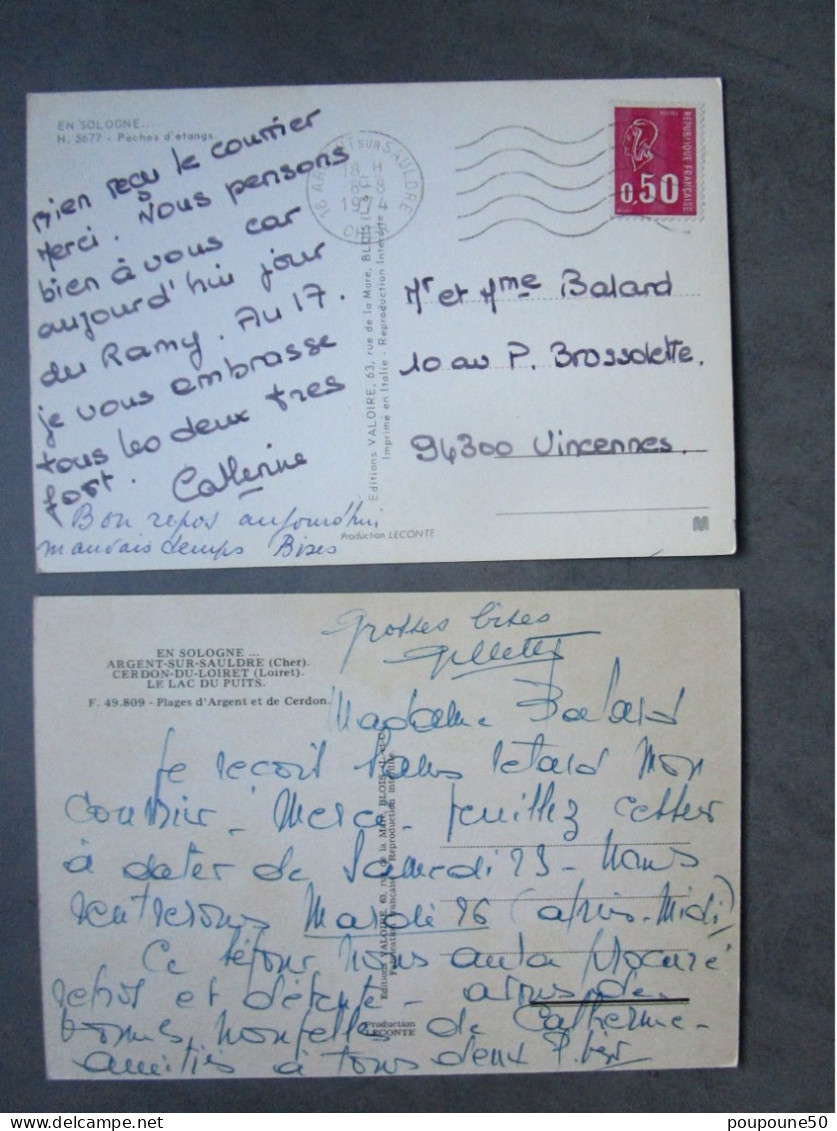 EN SOLOGNE...
H. 5677 - Pêches d'étangs.
Bien reçu le courrier
Merci. Nous pensons
bien à vous car
aujourd'hui jour
du Ramy. Au 17.
je vous embrasse
tous les deux tres
fort. Catherine
Bon repos aujourd'hui
mauvais temps Bises
18 ARGENT SUR SAULDRE
18 H
8-8
1974
CHER
Editions VALOIRE, 63, rue de la Mare, BLOIS (L.-&-C.)
Imprimé en Italie - Reproduction Interdite
Production LECONTE
RÉPUBLIQUE FRANÇAISE
0,50
Mr et Mme Balard
10 av P. Brossolette.
94300 Vincennes.
M
Grosses bises
EN SOLOGNE ...
ARGENT-SUR-SAULDRE (Cher).
CERDON-DU-LOIRET (Loiret).
LE LAC DU PUITS.
F. 49.809 - Plages d'Argent et de Cerdon.
Madame Balard
Je reçoit sans retard mon
courrier - Merci - Veuillez cesser
à dater de Samedi 23 - Nous
rentrerons Mardi 26 (après-Midi)
Ce séjour nous aura procuré
repos et détente -
bonnes nouvelles de Catherine -
amitiés à tous deux
Editions VALOIRE, 63, rue de la Mare, BLOIS (L.-et-C.)
Fabrication Française - Reproduction interdite
Production
LECONTE
www.delcampe.net
poupoune50